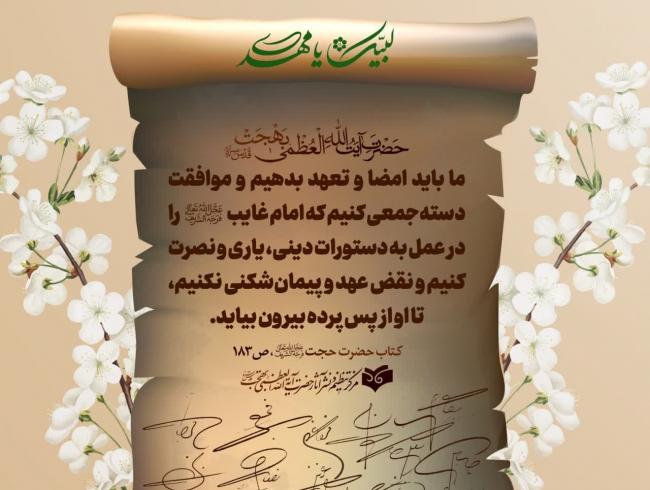 لبیک یا مهدی
حضرت آیت الله العظمی بهجت قدس‌سره
ما باید امضا و تعهد بدهیم و موافقت
دسته‌جمعی کنیم که امام غایب عجل‌الله‌تعالی فرجه‌الشریف را
در عمل به دستورات دینی، یاری و نصرت
کنیم و نقض عهد و پیمان‌شکنی نکنیم،
تا او از پس پرده بیرون بیاید.
کتاب حضرت حجت عجل‌الله‌تعالی فرجه‌الشریف، ص۱۸۳
مرکز تنظیم و نشر آثار حضرت آیة الله العظمی بهجت